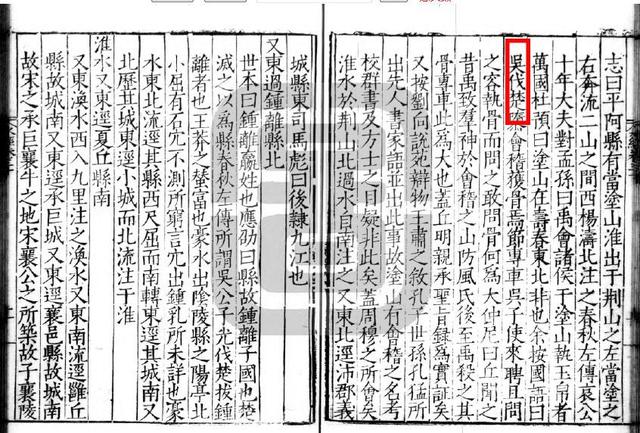 志曰平阿縣有當塗山淮出于荆山之左當塗之
右奔流二山之間西楊濤北注之春秋左傳哀公
十年大夫對孟孫曰禹會諸侯于塗山執玉帛者
萬國杜預曰塗山在壽春東北非也余按國語曰
吳伐楚會稽獲骨焉節專車吳子使來聘且問
之客執骨而問之敢問骨何爲大仲尼曰丘聞之
昔禹致羣神於會稽之山防風氏後至禹殺之其
骨專車此爲大也蓋丘明親承聖旨錄爲實証矣
又按劉向說苑辯物王肅之敘孔子世孫孔猛所
出先人書家語並出此事故塗山有會稽之名考
校群書及方士之目疑非此矣蓋周穆之所會矣
淮水於荆山北過水自南注之又東北逕沛郡義
城縣東司馬彪曰後隸九江也
又東過鍾離縣北
世本曰鍾離嬴姓也應劭曰縣故鍾離子國也楚
滅之以爲縣春秋左傳所謂吳公子光伐楚拔鍾
離者也王莽之蠶富也豪水出陰陵縣之陽亭北
小屈有石穴不測所窮言穴出鍾乳所未詳也豪
水東北流逕其縣西尺屈而南轉東逕其城南又
北歷其城東逕小城而北流注于淮
淮水又東逕夏丘縣南
又東渙水西入九里注之渙水又東南流逕雝丘
縣故城南又東逕承匡城又東逕襄邑縣故城南
故宋之承匡襄牛之地宋襄公之所築故子襄陵